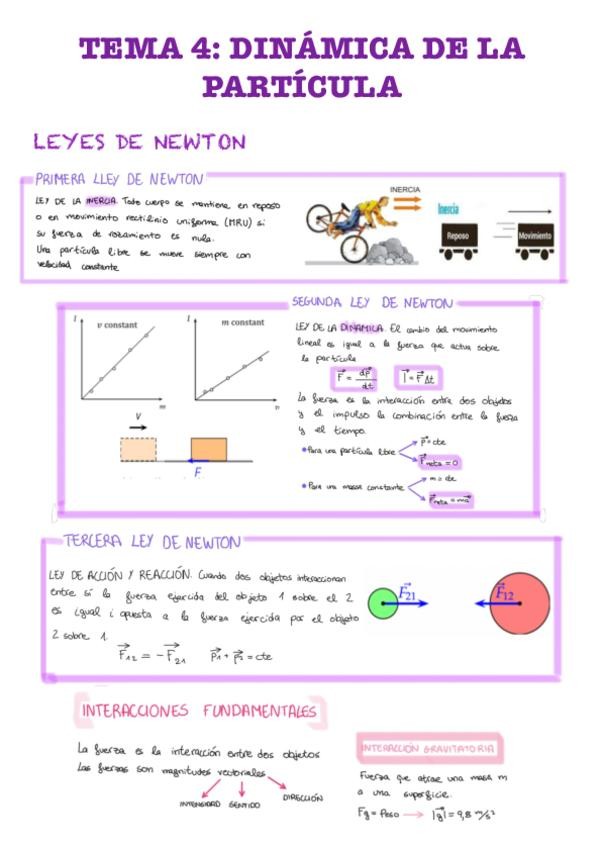 TEMA 4: DINÁMICA DE LA
PARTÍCULA
LEYES DE NEWTON
PRIMERA LLEY DE NEWTON
LEY DE LA INERCIA. Todo cuerpo se mantiene en reposo
o en movimiento rectilinio uniforme (MRU) si
su fuerza de rozamiento es nula.
Una partícula libre se mueve siempre con
velocidad constante
INERCIA
Inercia
Reposo
Movimiento
SEGUNDA LEY DE NEWTON
I
v constant
m
I
m constant
v
V
F
LEY DE LA DINÁMICA. El cambio del movimiento
lineal es igual a la fuerza que actua sobre
la partícula
F = dp/dt
I = F Δt
La fuerza es la interacción entre dos objetos
y el impulso la combinación entre la fuerza
y el tiempo.
• Para una partícula libre
p = cte
Fneta = 0
• Para una masa constante
m = cte
Fneta = ma
TERCERA LEY DE NEWTON
LEY DE ACCIÓN Y REACCIÓN. Cuando dos objetos interaccionan
entre sí la fuerza ejercida del objeto 1 sobre el 2
es igual i opuesta a la fuerza ejercida por el objeto
2 sobre 1.
F12 = - F21 p1 + p2 = cte
F21
F12
INTERACCIONES FUNDAMENTALES
La fuerza es la interacción entre dos objetos
Las fuerzas son magnitudes vectoriales
INTENSIDAD SENTIDO DIRECCIÓN
INTERACCIÓN GRAVITATORIA
Fuerza que atrae una masa m
a una superficie.
Fg = Peso → |g| = 9,8 m/s²